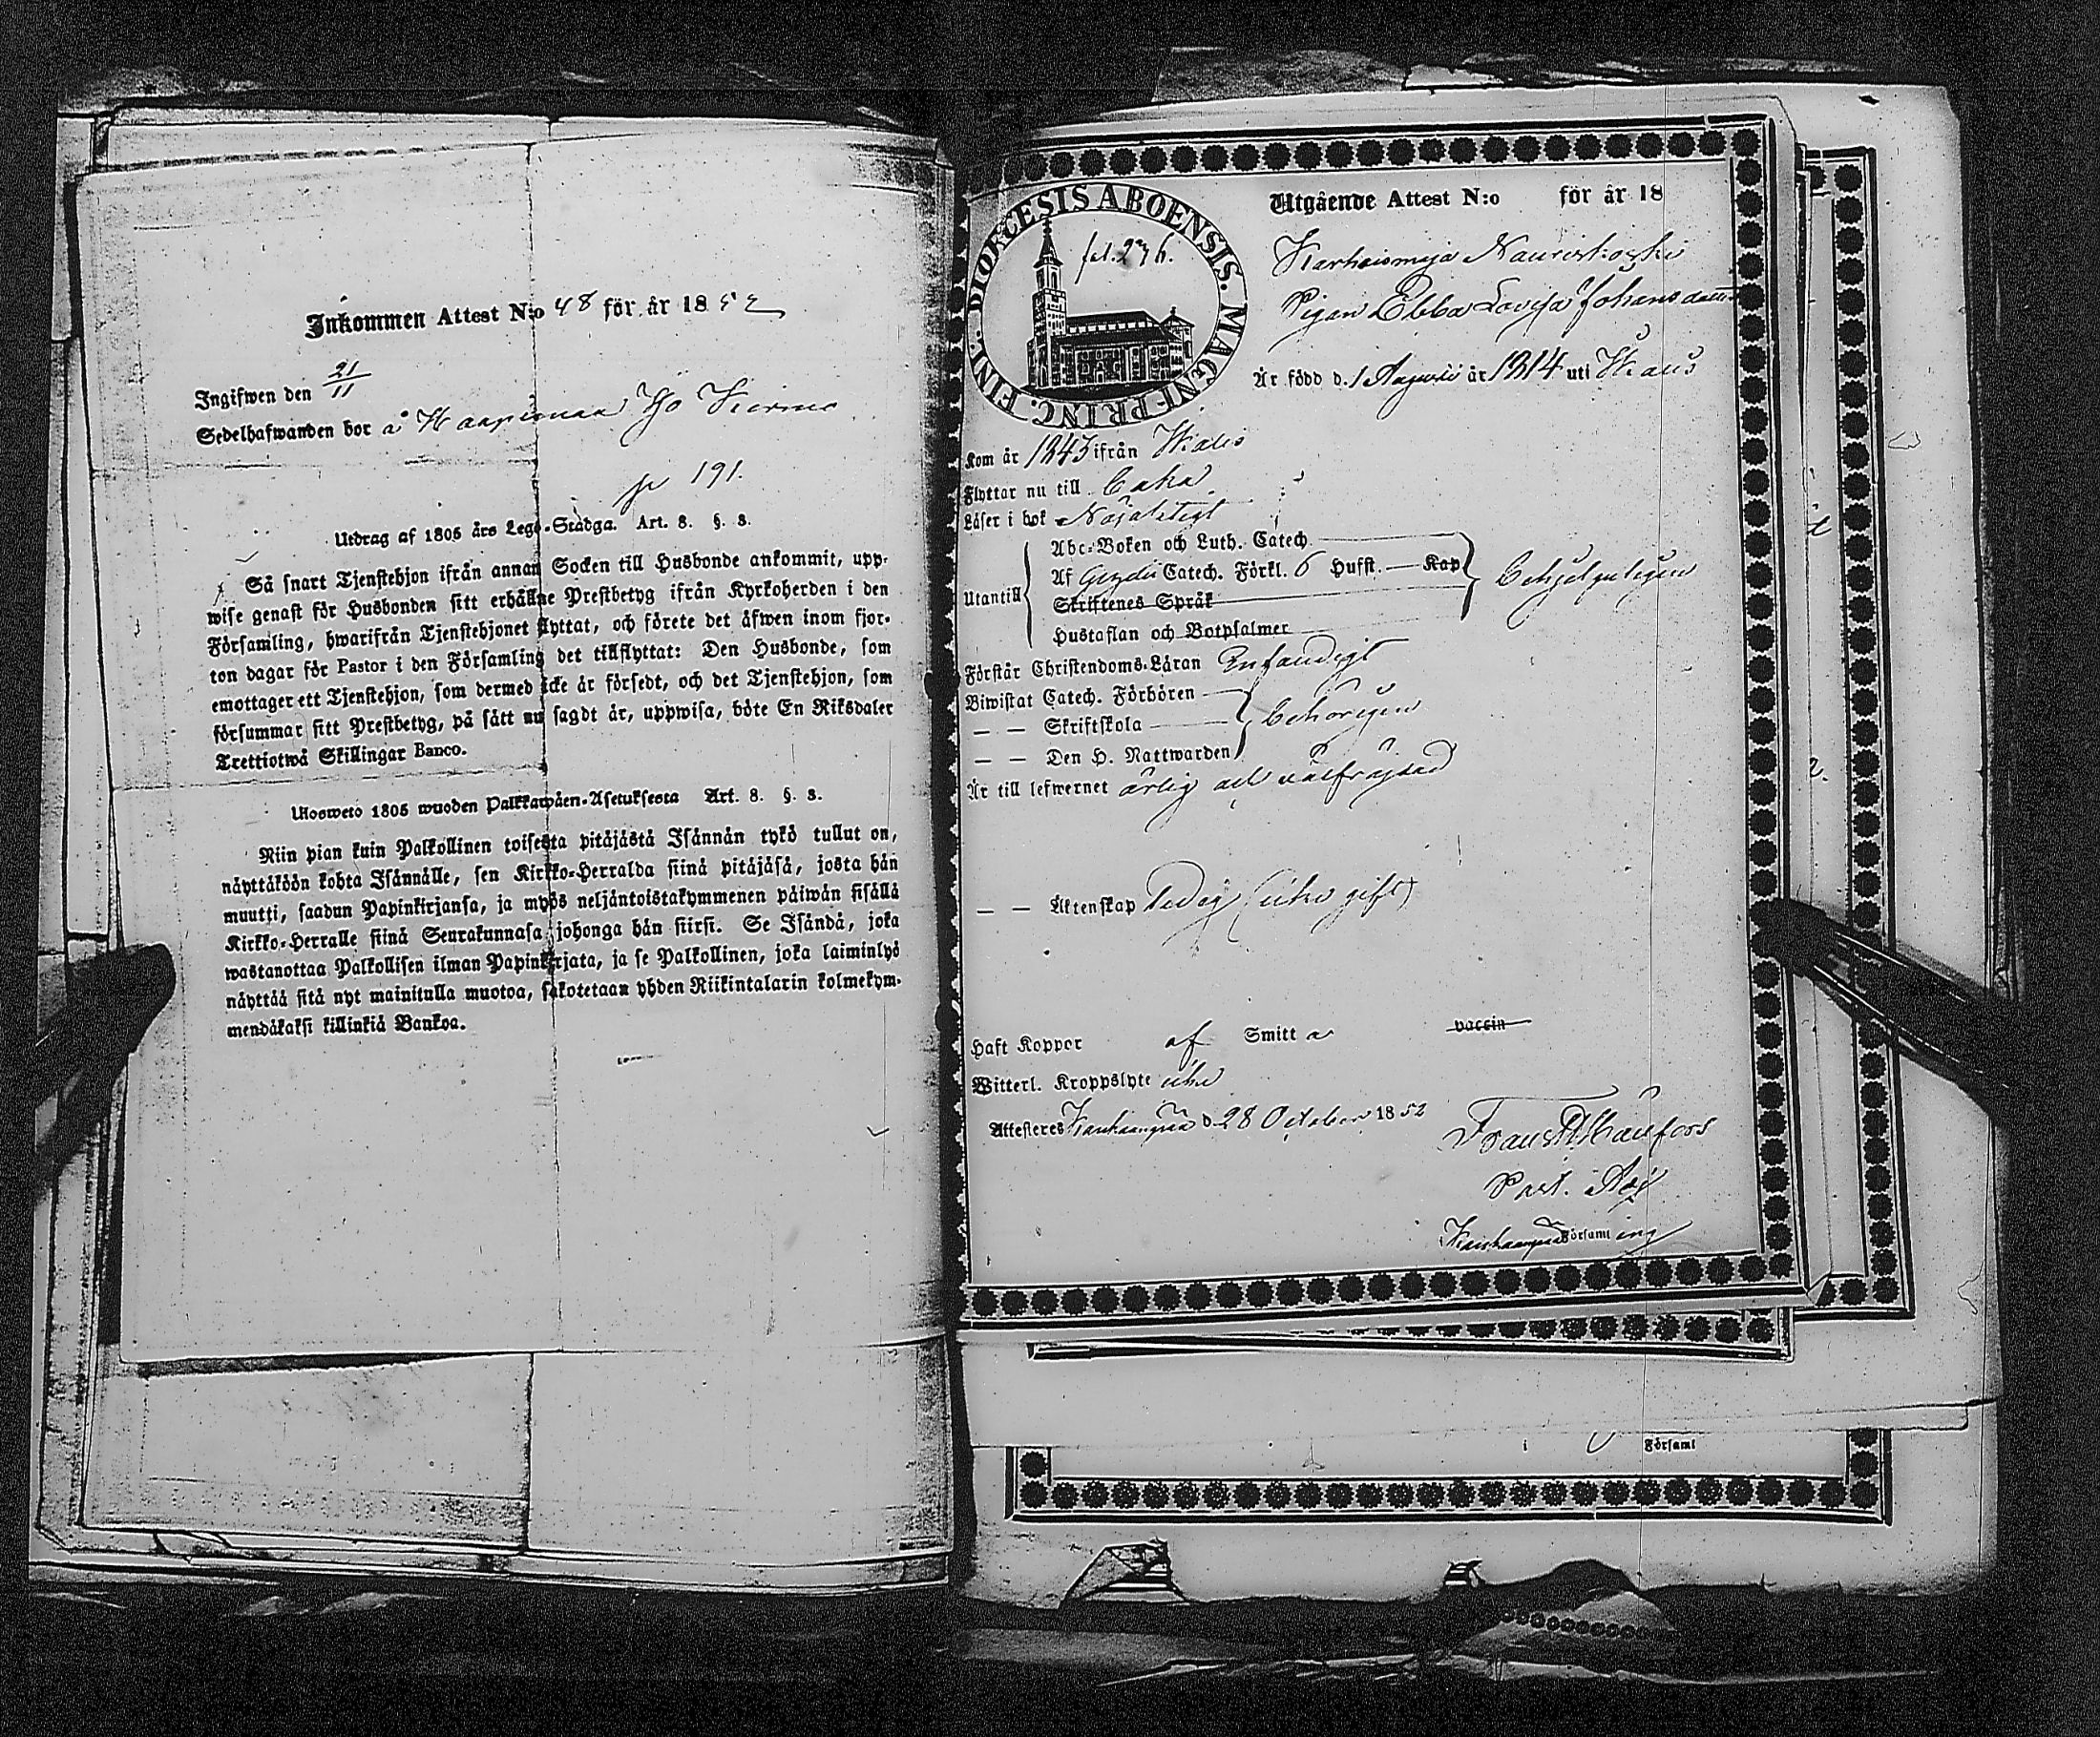 Inkommen Attest N:o 48 för år 1852
Ingifwen den 21/11
Sedelhafwanden bor å
p 191.
Utdrag af 1805 års Lego-Stadga. Art. 8. §. 3.
Så snart Tjenstehjon ifrån annan Socken till Husbonde ankommit, upp-
wise genast för Husbonden sitt erhållne Prestbetyg ifrån Kyrkoherden i den
Församling, hwarifrån Tjenstehjonet flyttat, och förete det äfwen inom fjor-
ton dagar för Pastor i den Församling det tillflyttat: Den Husbonde, som
emottager ett Tjenstehjon, som dermed icke är försedt, och det Tjenstehjon, som
försummar sitt Prestbetyg, på sätt nu sagdt är, uppwisa, böte En Riksdaler
Trettiotwå Skillingar Banco.
Ulosweto 1805 wuoden Palkkawäen-Asetuksesta Art. 8. §. 3.
Niin pian kuin Palkollinen toisesta pitäjästä Isännän tykö tullut on,
näyttäköön kohta Isännälle, sen Kirkko-Herralda siinä pitäjäsä, josta hän
muutti, saadun Papinkirjansa, ja myös neljäntoistakymmenen päiwän sisällä
Kirkko-Herralle siinä Seurakunnasa johonga hän siirsi. Se Isändä, joka
wastanottaa Palkollisen ilman Papinkirjata, ja se Palkollinen, joka laiminlyö
näyttää sitä nyt mainitulla muotoa, sakotetaan yhden Riikintalarin kolmekym-
mendäkaksi killinkiä Bankoa.
DIOECESIS ABOENSIS. MAGNI PRINC. FINL.
fol. 276.
Utgående Attest N:o för år 18
Karhoismaja
Pigan Ebba Lovisa Johansdotter
Är född d. 1 Augusti år 1814 uti
Kom år 1843 ifrån
Flyttar nu till
Läser i bok Nöjaktigt
Utantill
Abc-Boken och Luth. Catech
Af Catech. Förkl. 6 Husst. — Kap
Skriftenes Språk
Hustaflan och Botpsalmer
Förstår Christendoms-Läran Enfaldigt
Biwistat Catech. Förhören
— — Skriftskola
— — Den H. Nattwarden
behörigen
Är till lefwernet ärlig och välfräjdad
— — Äktenskap Ledig (icke gift)
Haft Koppor af Smitt a vaccin
Witterl. Kroppslyte icke
Attesteras d. 28 October 1852
Past. Adj
Församl ing
i Församl